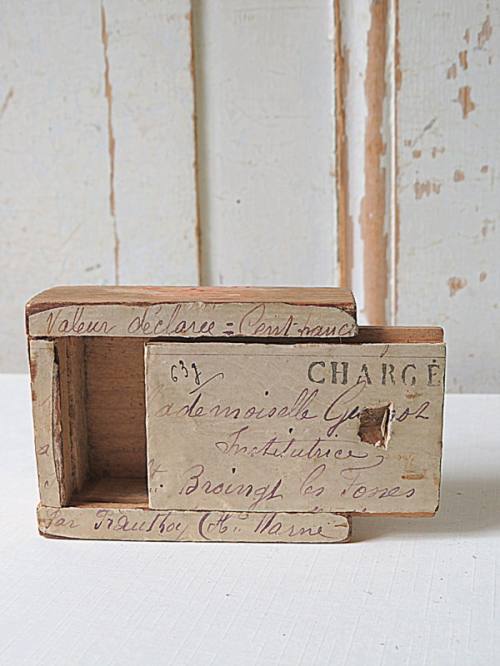 Valeur déclarée = Cent francs
637
CHARGÉ
ademoiselle
Institutrice
St. Broingt les Fosses
Par Prauthoy (Hte Marne)